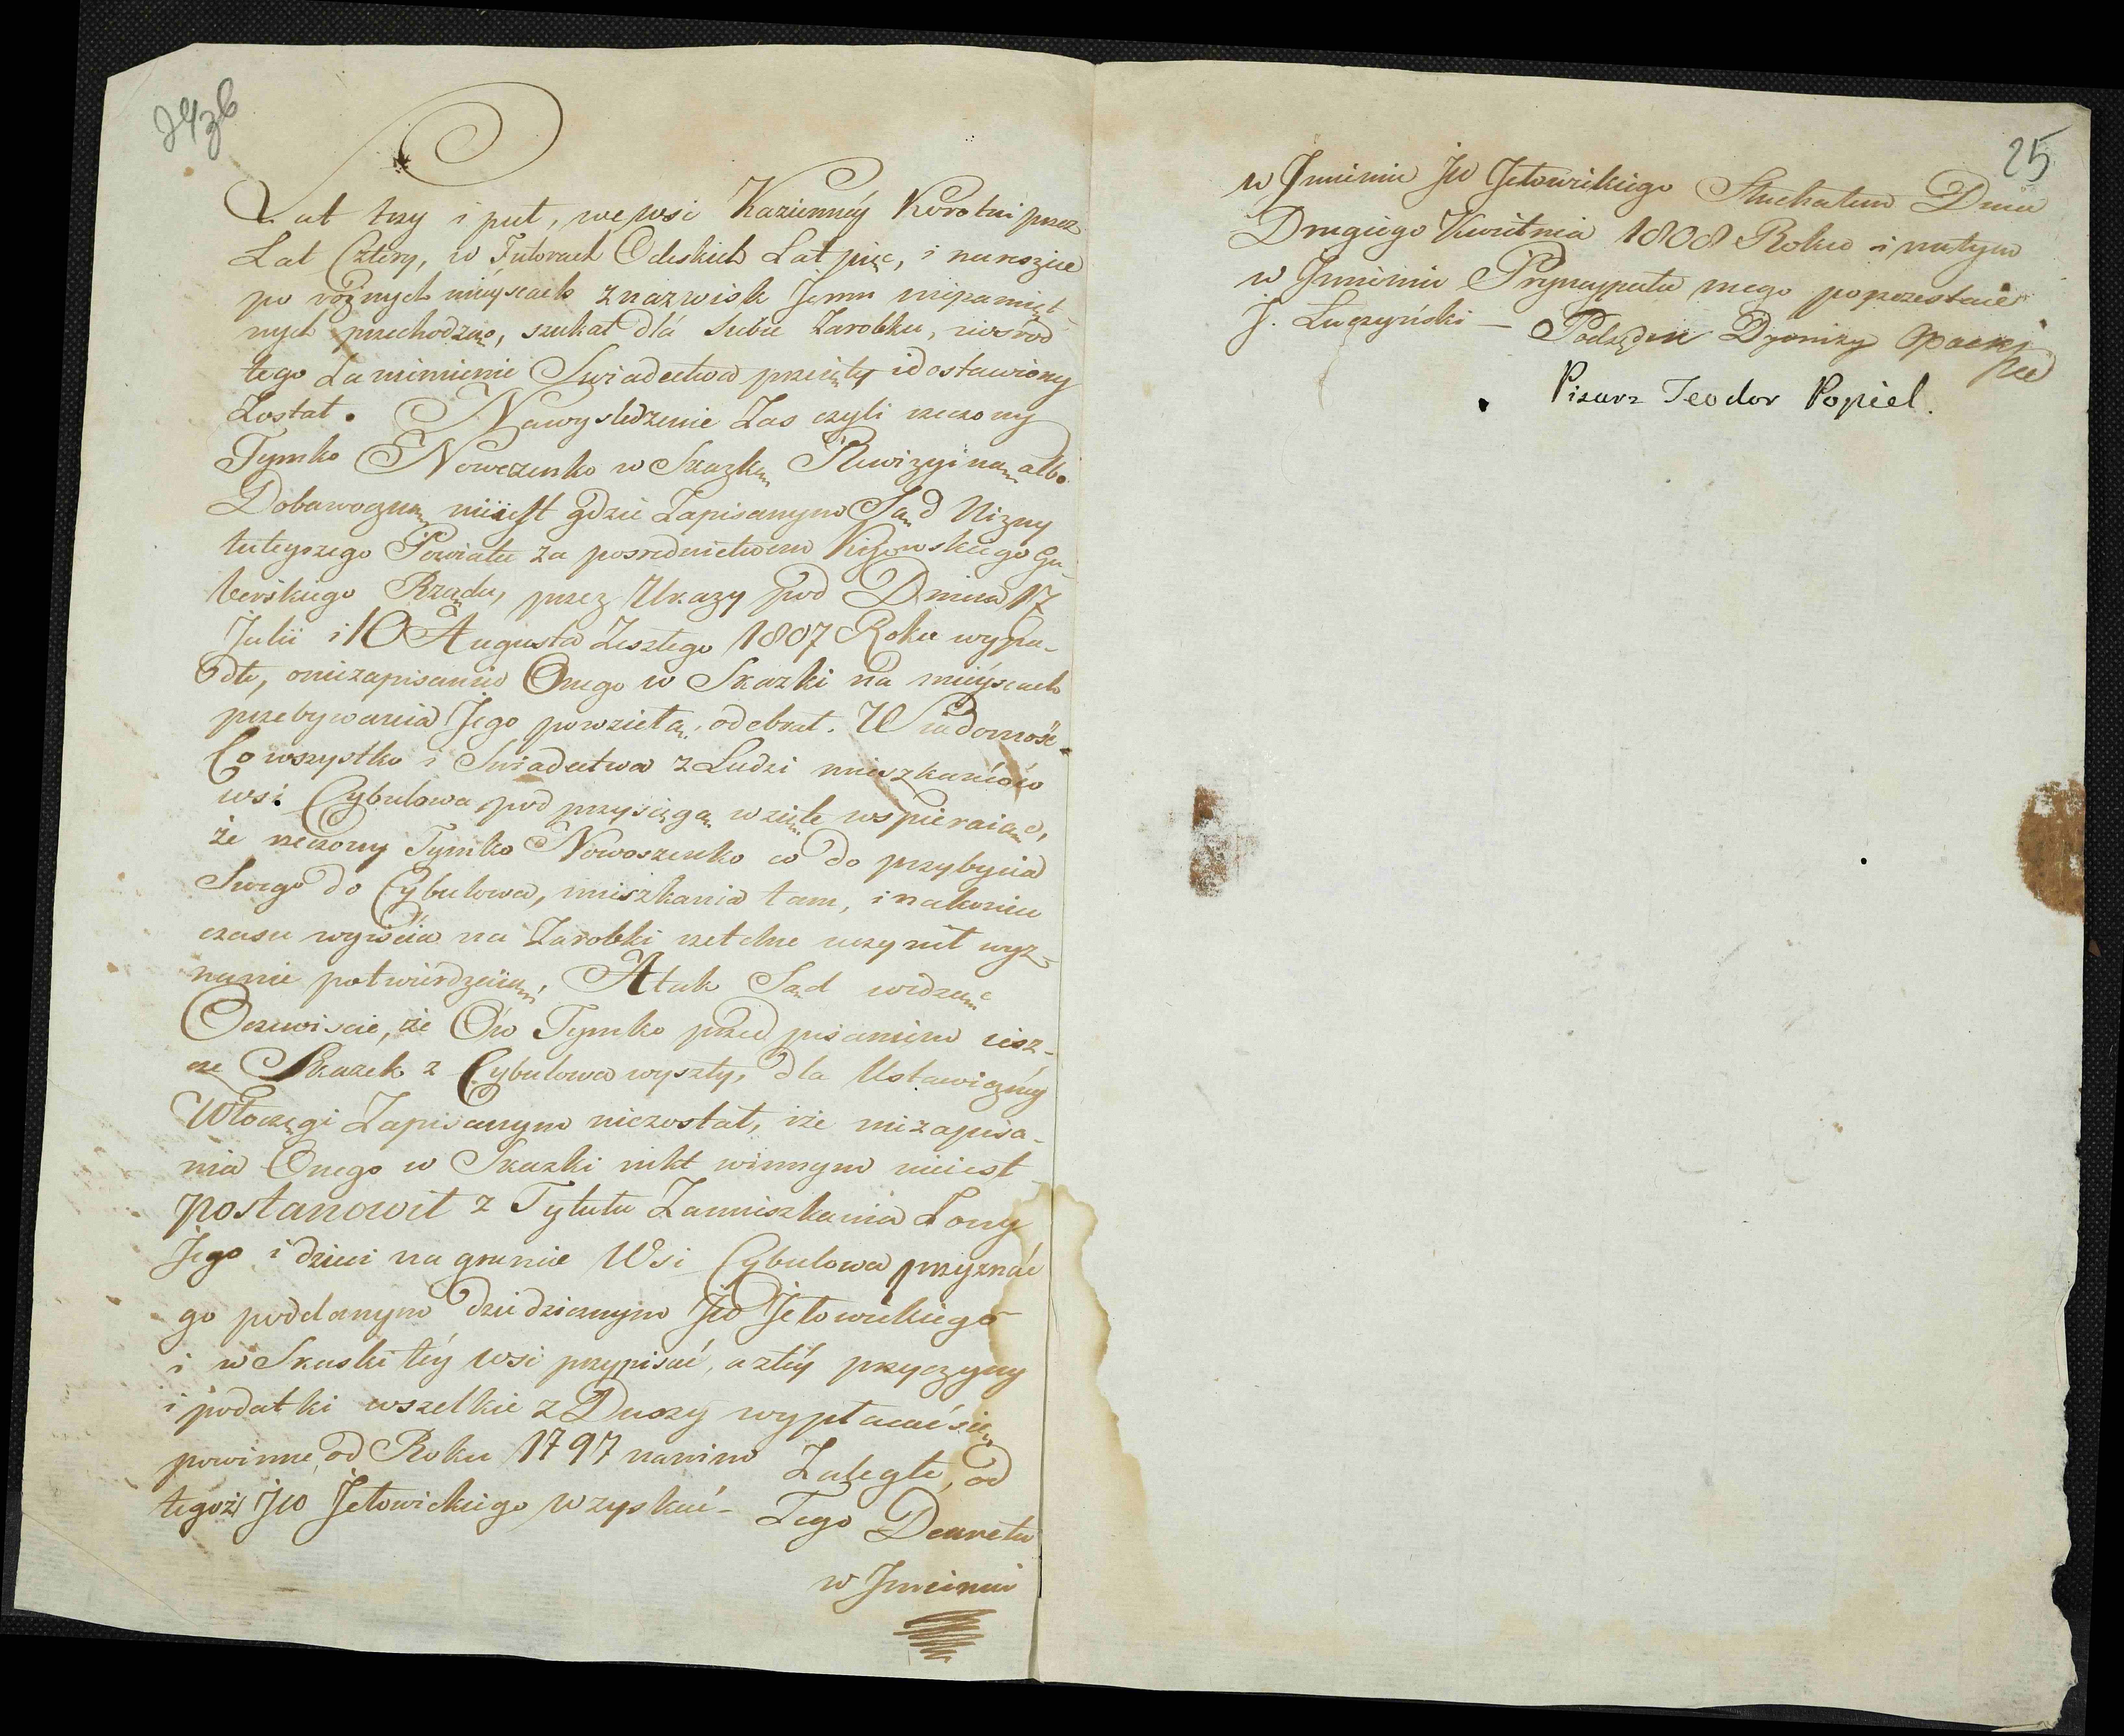 24zb
Lat trzy i puł, we wsi Kazienney Korotni przez
Lat Cztery, w Futorach Odeskich Lat pięc, i na rozne
po rożnych mieyscach z nazwisk Jemu niepamięt-
nych przechodząc, szukał dla siebie Zarobku, wsrod
tego Za nimienie Swiadectwa przeięty i dostawiony
Został. Na wysledzenie Zas czyli rzeczony
Tymko Nowozenko w Skazkę Rewizyiną albo
Dobawoczną nieiest gdzie Zapisanym Sąd Nizny
tuteyszego Powiatu za posrednictwem Kijowskiego Gu-
berskiego Rządu, przez Ukazy pod Dniem 17
Julii i 10 Augusta Zeszłego 1807 Roku wypa-
dłe, o niezapisaniu Onego w Skazki na mieyscach
przebywania Jego powzietą, odebrał. Wiadomość
Co wszystko i Swiadectwa z Ludzi mieszkańców
wsi Cybulowa pod przysięgą wzięte wspieraiąc,
że rzeczony Tymko Nowoszenko co do przybycia
Swego do Cybulowa, mieszkania tam, i nakoniec
czasu wyiścia na Zarobki rzetelne uczynił wyz-
nanie potwierdzaią, A tak Sąd widząc
Oczewiscie, że Ów Tymko przed pisaniem iesz-
cze Skazek z Cybulowa wyszły, dla Ustawiczney
Włoczęgi Zapisanym niezostał, iże niezapisa-
nia Onego w Skazki nikt winnym nieiest
postanowił z Tytułu Zamieszkania Zony
Jego i dzieci na gruncie Wsi Cybulowa przyznać
go poddanym dziedzicznym Jw Jełowickiego
i w Skaski téy wsi przypisać, a ztéy przyczyny
i podatki wszelkie z Duszy wypłacać się
powinne, od Roku 1797 na nim Zaległe, od
tegoż Jw Jełowickiego wzyskać - Tego Decretu
w Jmieniu
25
w Jmieniu Jw Jełowickiego Słuchałem Dnia
Drugiego Kwietnia 1808 Roku i na tym
w Jmieniu Pryncypała mego poprzestaie
J. Łuczyński — Podsędek Dyonizy Opacki
Pisarz Teodor Popiel.